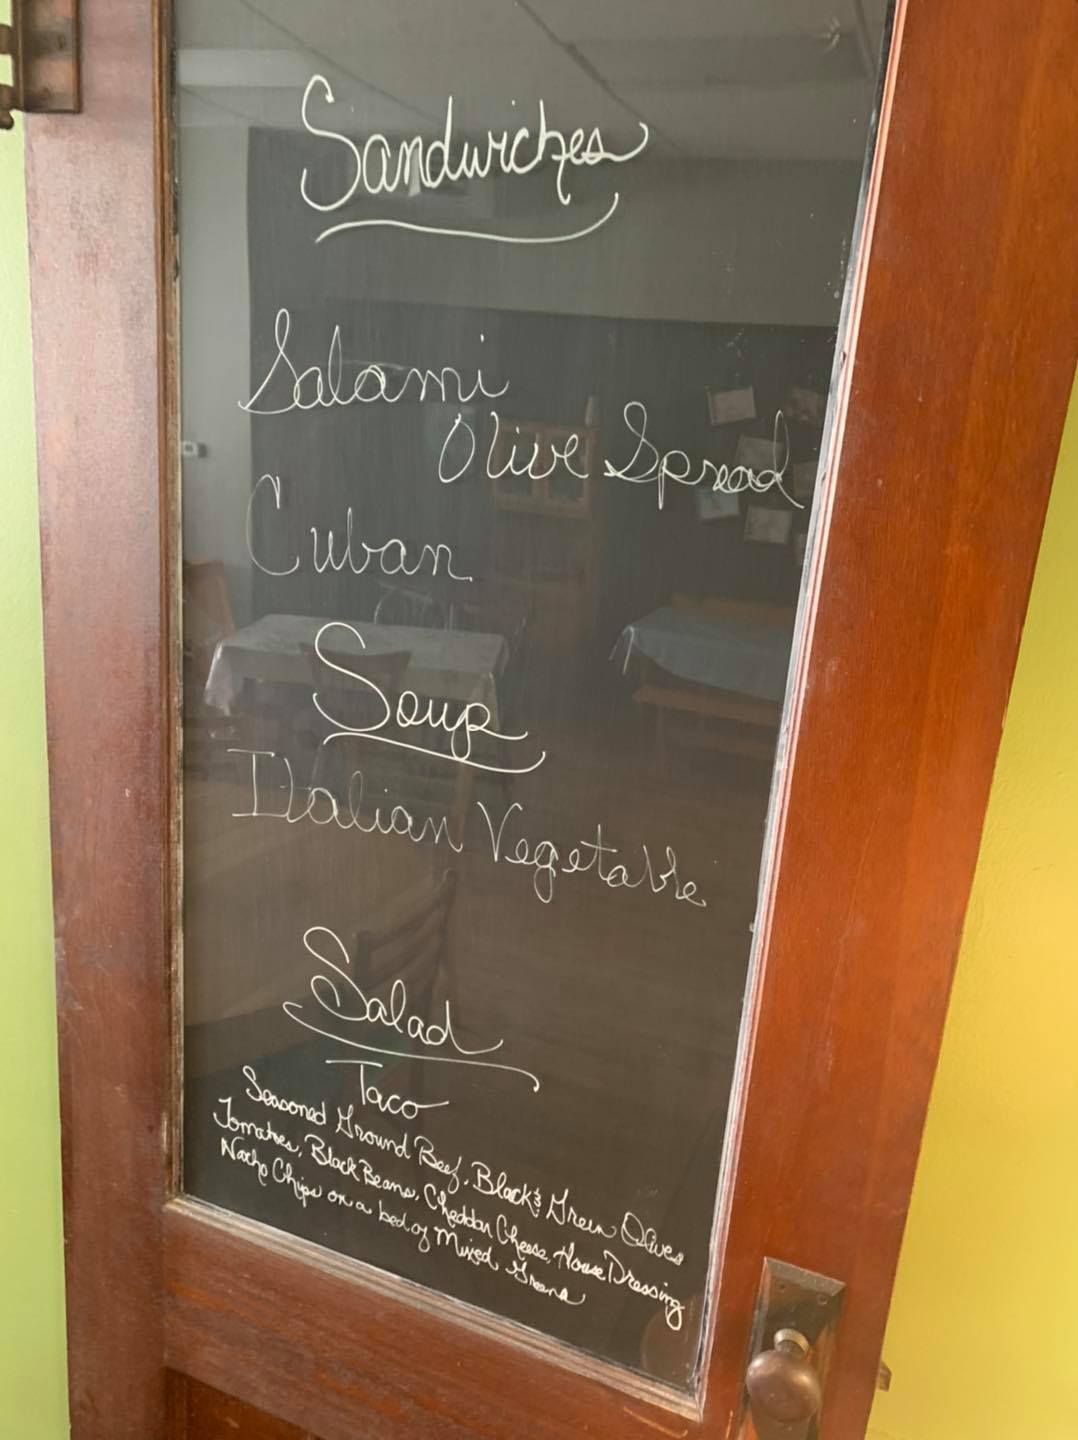 Sandwiches
Salami
Olive Spread
Cuban
Soup
Italian Vegetable
Salad
Taco
Seasoned Ground Beef, Black & Green Olives
Tomatoes, Black Beans, Cheddar Cheese, House Dressing
Nacho Chips on a bed of Mixed Greens